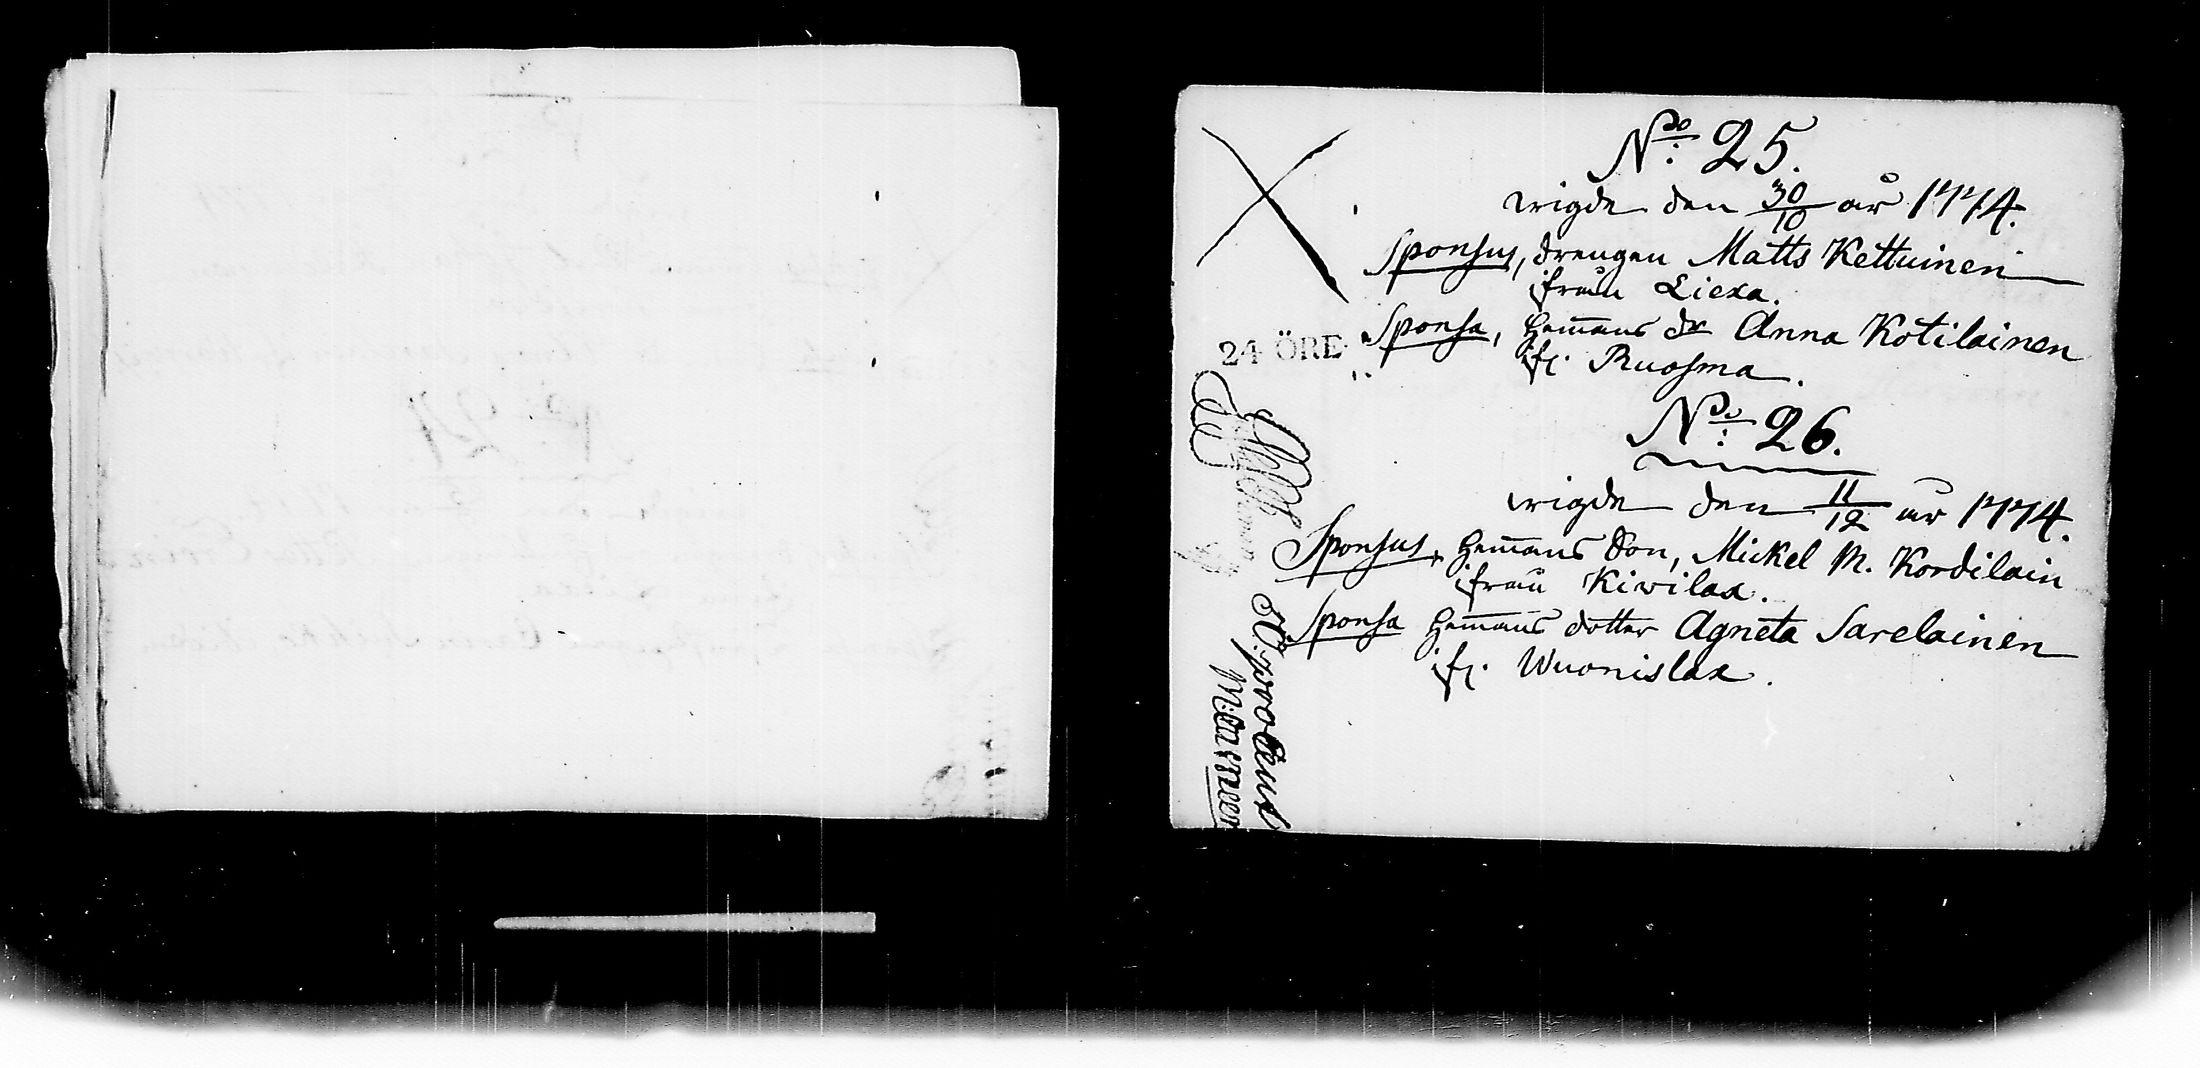 No: 25.
wigde den 30/10 år 1774.
Sponsus, drengen Matts Kettuinen
ifrån Liexa.
Sponsa, hem̅ans dr Anna Kotilainen
24 ÖRE
ifr. Ruosma.
No: 26.
wigde den 11/12 år 1774.
Sponsus, hem̅ans Son, Mickel M. Kordilain
ifrån Kivilax.
Sponsa hem̅ans dotter Agneta Sarelainen
ifr. Wuonislax.